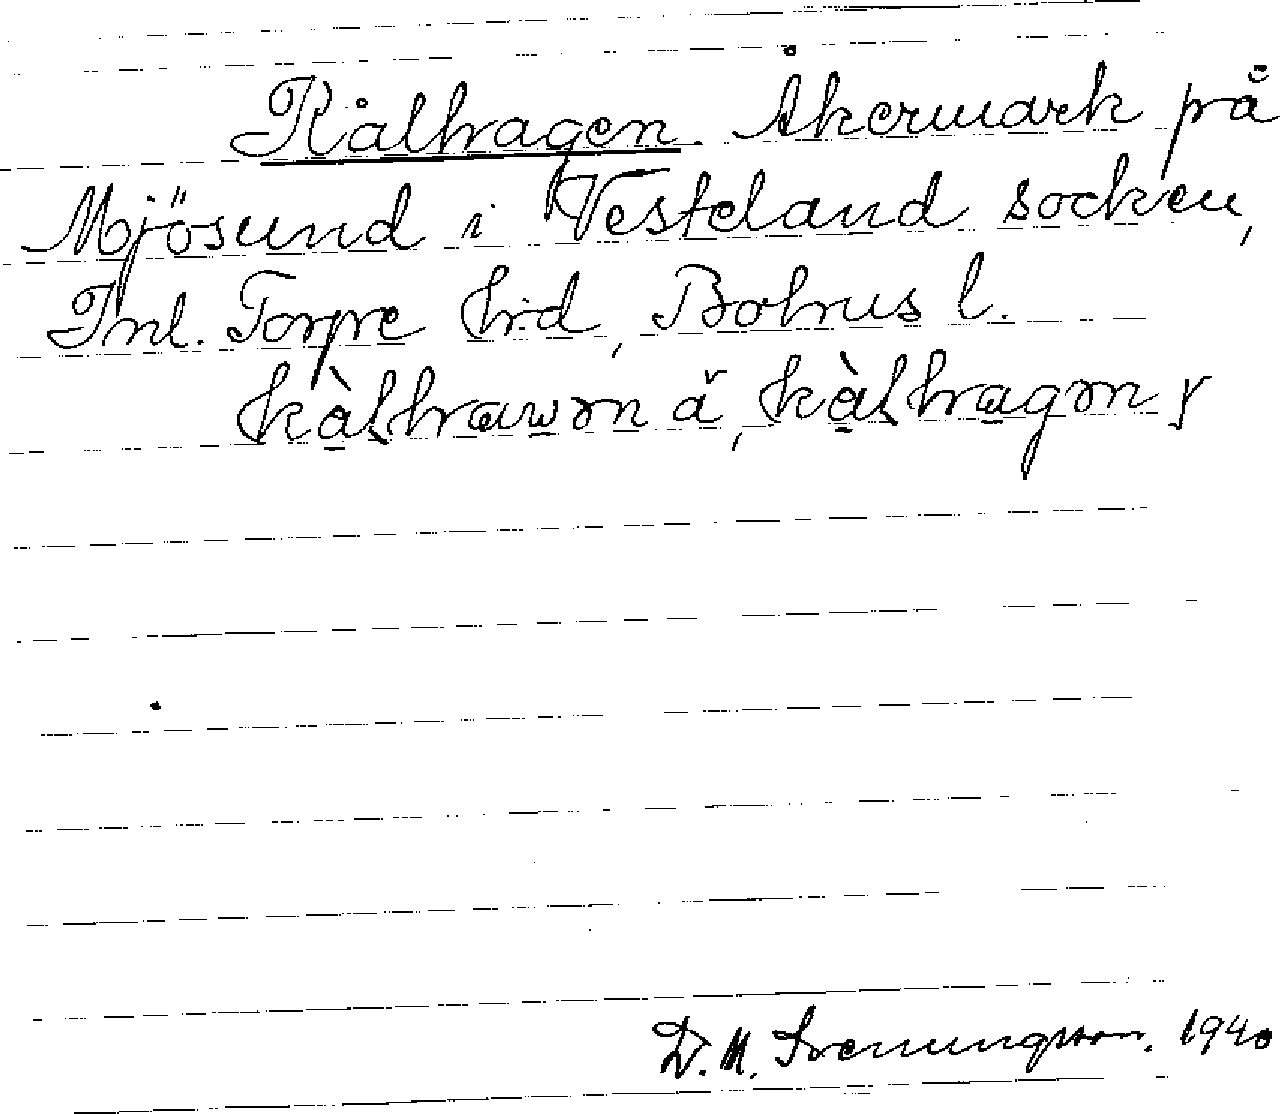 Kålhagen. Åkermark på
Mjösund i Vesteland socken,
Inl. Torpe hrd, Bohus l.
kàlhawən ä, kàlhagən y
D. M. Svenungsson. 1940